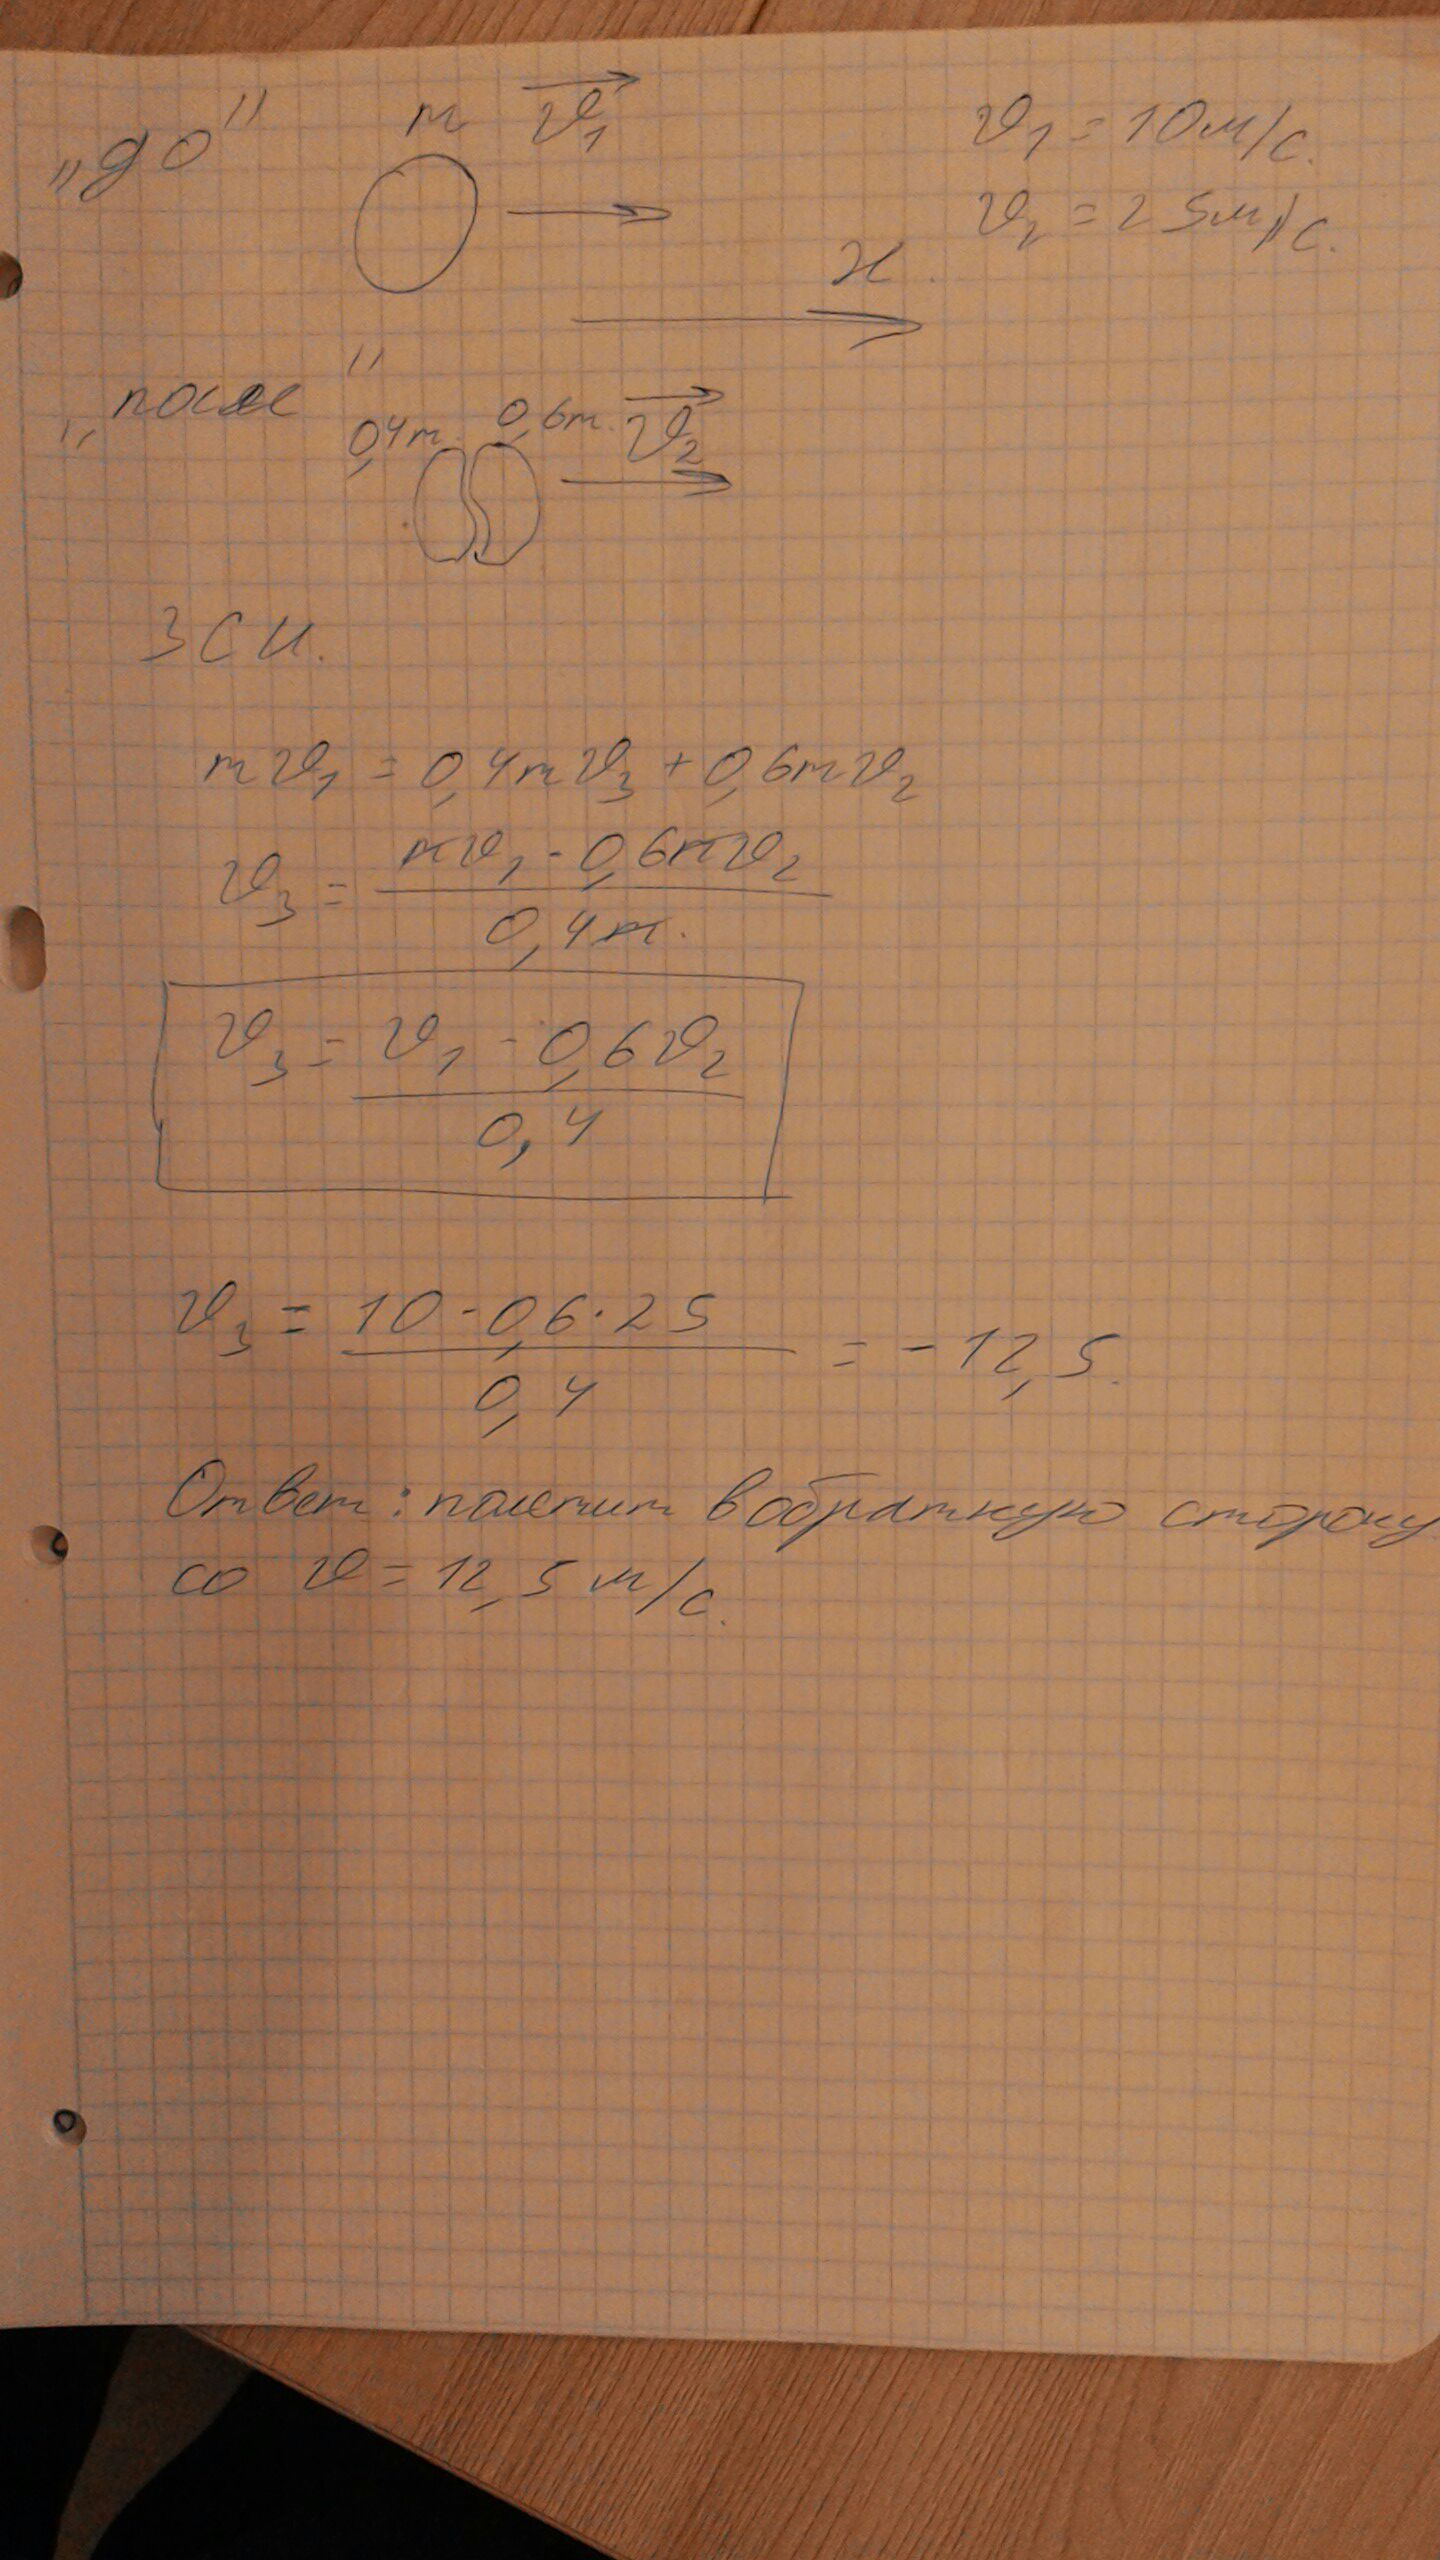 „до” m v⃗₁ v₁ = 10 м/с.
v₂ = 25 м/с.
x
„после” 0,4m. 0,6m. v⃗₂
ЗСИ.
mv₁ = 0,4mv₃ + 0,6mv₂
v₃ = (mv₁ - 0,6mv₂) / 0,4m.
v₃ = (v₁ - 0,6v₂) / 0,4
v₃ = (10 - 0,6·25) / 0,4 = -12,5.
Ответ: полетит в обратную сторону
со v = 12,5 м/с.